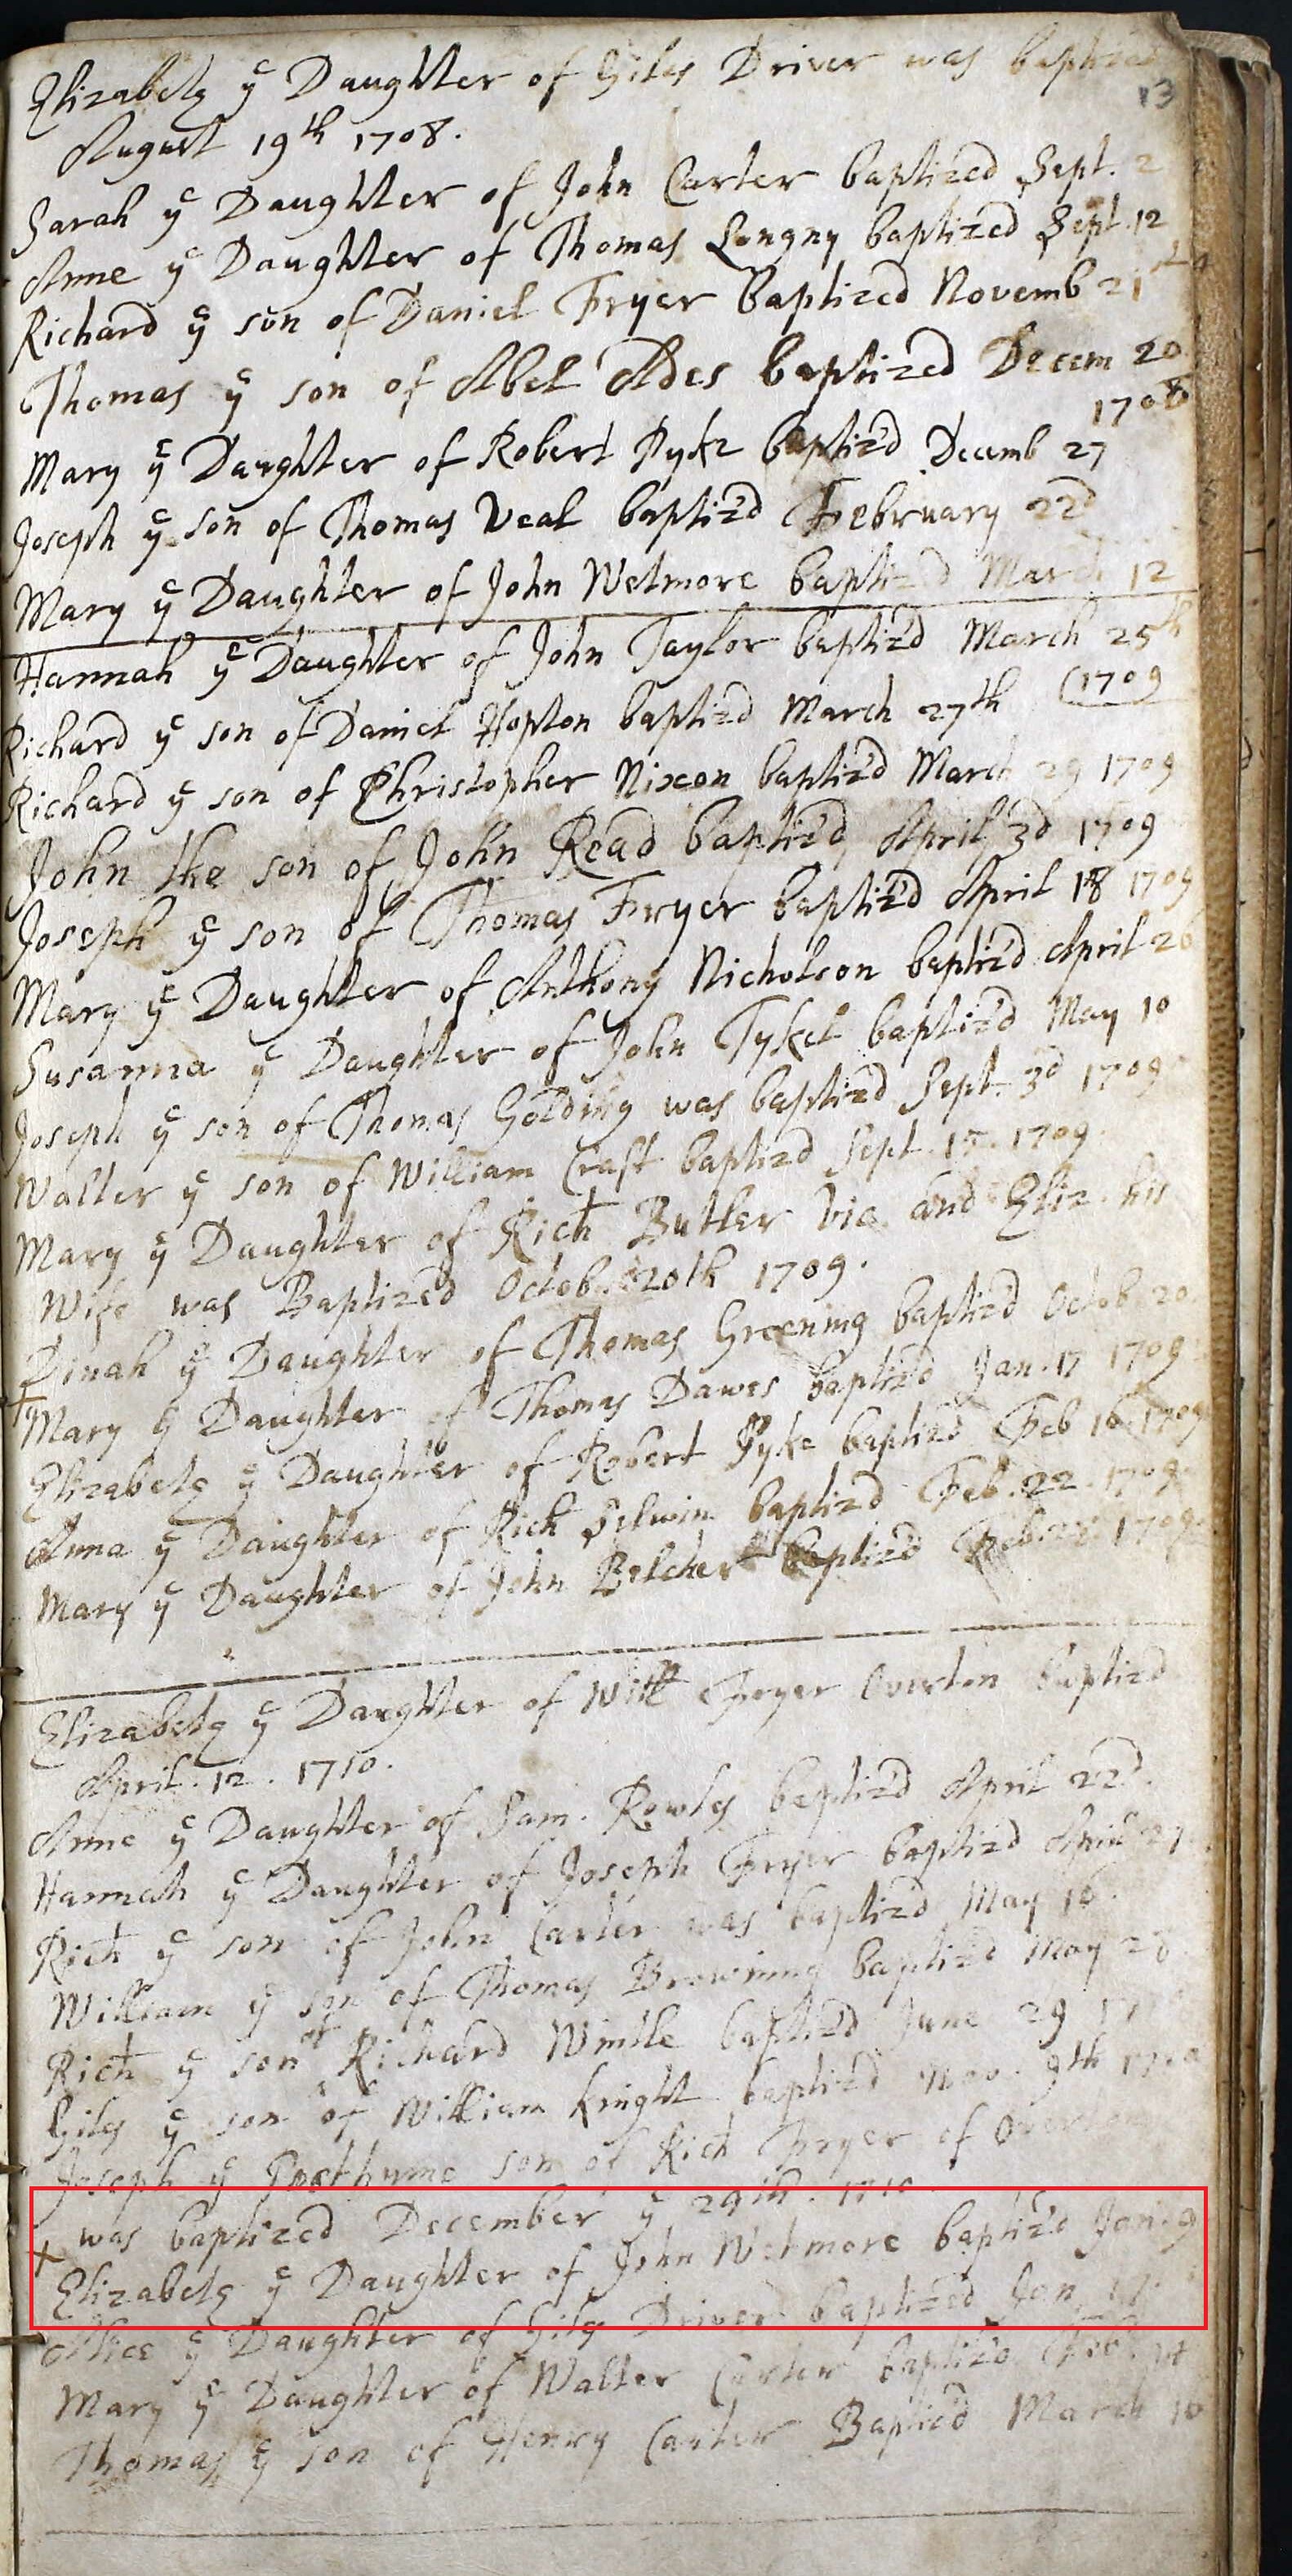 Elizabeth ye Daughter of Giles Driver was baptized
13
August 19th 1708.
Sarah ye Daughter of John Carter baptized Sept. 2
Anne ye Daughter of Thomas Longny baptized Sept. 12
Richard ye son of Daniel Fryer baptized Novemb 21
Thomas ye son of Abel Ades baptized Decem 20
1708
Mary ye Daughter of Robert Pyke baptiz'd Decemb 27
Joseph ye son of Thomas Veal baptiz'd February 22d
Mary ye Daughter of John Wetmore baptiz'd March 12
Hannah ye Daughter of John Taylor baptiz'd March 25th
Richard ye son of Daniel Hopton baptiz'd March 27th (1709
Richard ye son of Christopher Nixon baptiz'd March 29 1709
John the son of John Read baptiz'd April 3d 1709
Joseph ye son of Thomas Fryer baptiz'd April 18 1709
Mary ye Daughter of Anthony Nicholson baptiz'd April 26
Susanna ye Daughter of John Tyket baptiz'd May 10
Joseph ye son of Thomas Golding was baptiz'd Sept. 3d 1709
Walter ye son of William Craft baptiz'd Sept. 15. 1709.
Mary ye Daughter of Rich Butler Vic. and Eliz. his
Wife was Baptized Octob. 20th 1709.
Dinah ye Daughter of Thomas Greening baptiz'd Octob. 20.
+ Mary ye Daughter of Thomas Dawes baptiz'd Jan. 17 1709
Elizabeth ye Daughter of Robert Pyke baptiz'd Feb 16. 1709
Anna ye Daughter of Rich Selwin baptiz'd Feb. 22. 1709.
Mary ye Daughter of John Belcher baptiz'd Feb. 1709.
Elizabeth ye Daughter of Will Fryer Overton baptiz'd
April. 12. 1710.
Anne ye Daughter of Sam. Rowles baptiz'd April 22d.
Hannah ye Daughter of Joseph Fryer baptiz'd April 27
Rich ye son of John Carter was baptiz'd May 16.
William ye son of Thomas Browning baptiz'd May 28
Rich ye son of Richard Wintle baptiz'd June 29
Giles ye son of William Knight baptiz'd Nov. 9th 1710
Joseph ye Posthume son of Rich Fryer of Overton
was baptized December ye 29th. 1710.
+ Elizabeth ye Daughter of John Wetmore baptiz'd Jan. 9
Alice ye Daughter of Giles Driver baptized Jan. 17.
Mary ye Daughter of Walter Carter baptiz'd Feb. 14
Thomas ye son of Henry Carter Baptiz'd March 10